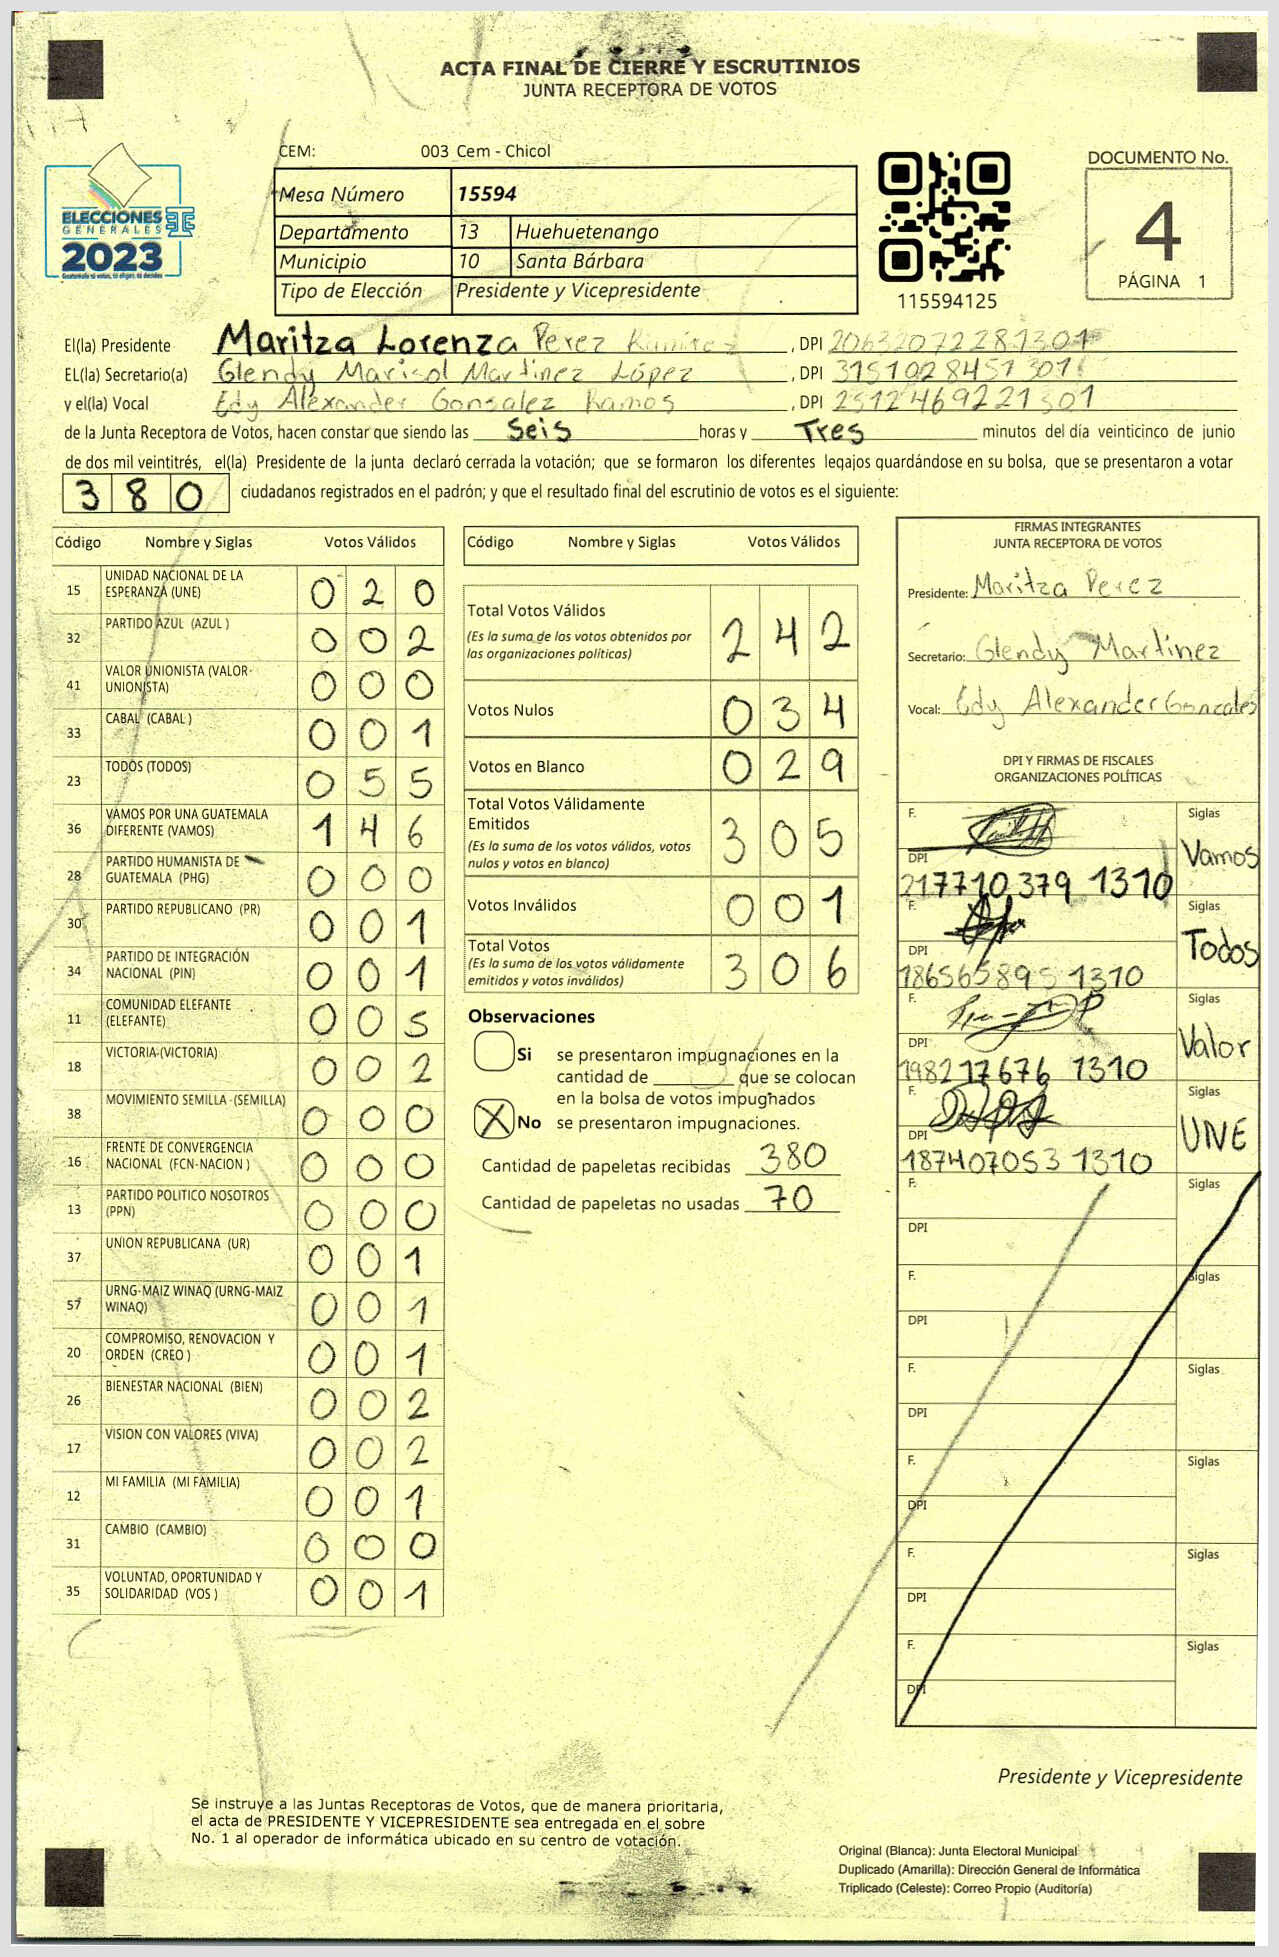 ACTA FINAL DE CIERRE Y ESCRUTINIOS
JUNTA RECEPTORA DE VOTOS
CEM: 003 Cem - Chicol
Mesa Número 15594
Departamento 13 Huehuetenango
Municipio 10 Santa Bárbara
Tipo de Elección Presidente y Vicepresidente
ELECCIONES
GENERALES
2023
115594125
DOCUMENTO No.
4
PÁGINA 1
El(la) Presidente Maritza Lorenza Perez Ramirez, DPI 2063207228 1301
EL(la) Secretario(a) Glendy Marisol Martinez López, DPI 3151028451301
y el(la) Vocal Edy Alexander Gonzalez Ramos, DPI 2512469221301
de la Junta Receptora de Votos, hacen constar que siendo las Seis horas y Tres minutos del día veinticinco de junio
de dos mil veintitrés, el(la) Presidente de la junta declaró cerrada la votación; que se formaron los diferentes legajos guardándose en su bolsa, que se presentaron a votar
380 ciudadanos registrados en el padrón; y que el resultado final del escrutinio de votos es el siguiente:
Código Nombre y Siglas Votos Válidos
15 UNIDAD NACIONAL DE LA ESPERANZA (UNE) 0 2 0
32 PARTIDO AZUL (AZUL ) 0 0 2
41 VALOR UNIONISTA (VALOR-UNIONISTA) 0 0 0
33 CABAL (CABAL ) 0 0 1
23 TODOS (TODOS) 0 5 5
36 VAMOS POR UNA GUATEMALA DIFERENTE (VAMOS) 1 4 6
28 PARTIDO HUMANISTA DE GUATEMALA (PHG) 0 0 0
30 PARTIDO REPUBLICANO (PR) 0 0 1
34 PARTIDO DE INTEGRACIÓN NACIONAL (PIN) 0 0 1
11 COMUNIDAD ELEFANTE (ELEFANTE) 0 0 5
18 VICTORIA (VICTORIA) 0 0 2
38 MOVIMIENTO SEMILLA (SEMILLA) 0 0 0
16 FRENTE DE CONVERGENCIA NACIONAL (FCN-NACION ) 0 0 0
13 PARTIDO POLITICO NOSOTROS (PPN) 0 0 0
37 UNION REPUBLICANA (UR) 0 0 1
57 URNG-MAIZ WINAQ (URNG-MAIZ WINAQ) 0 0 1
20 COMPROMISO, RENOVACION Y ORDEN (CREO ) 0 0 1
26 BIENESTAR NACIONAL (BIEN) 0 0 2
17 VISION CON VALORES (VIVA) 0 0 2
12 MI FAMILIA (MI FAMILIA) 0 0 1
31 CAMBIO (CAMBIO) 0 0 0
35 VOLUNTAD, OPORTUNIDAD Y SOLIDARIDAD (VOS ) 0 0 1
Código Nombre y Siglas Votos Válidos
Total Votos Válidos 2 4 2
(Es la suma de los votos obtenidos por
las organizaciones políticas)
Votos Nulos 0 3 4
Votos en Blanco 0 2 9
Total Votos Válidamente
Emitidos 3 0 5
(Es la suma de los votos válidos, votos
nulos y votos en blanco)
Votos Inválidos 0 0 1
Total Votos 3 0 6
(Es la suma de los votos válidamente
emitidos y votos inválidos)
Observaciones
Si se presentaron impugnaciones en la
cantidad de ______ que se colocan
en la bolsa de votos impugnados
X No se presentaron impugnaciones.
Cantidad de papeletas recibidas 380
Cantidad de papeletas no usadas 70
FIRMAS INTEGRANTES
JUNTA RECEPTORA DE VOTOS
Presidente: Maritza Perez
Secretario: Glendy Martinez
Vocal: Edy Alexander Gonzales
DPI Y FIRMAS DE FISCALES
ORGANIZACIONES POLÍTICAS
F. Siglas
Vamos
DPI
217710379 1310
F. Siglas
Todos
DPI
186565895 1310
F. Siglas
Valor
DPI
198217676 1310
F. Siglas
UNE
DPI
187407053 1310
F. Siglas
DPI
F. Siglas
DPI
F. Siglas
DPI
F. Siglas
DPI
F. Siglas
DPI
F. Siglas
DPI
Presidente y Vicepresidente
Se instruye a las Juntas Receptoras de Votos, que de manera prioritaria,
el acta de PRESIDENTE Y VICEPRESIDENTE sea entregada en el sobre
No. 1 al operador de informática ubicado en su centro de votación.
Original (Blanca): Junta Electoral Municipal
Duplicado (Amarilla): Dirección General de Informática
Triplicado (Celeste): Correo Propio (Auditoría)